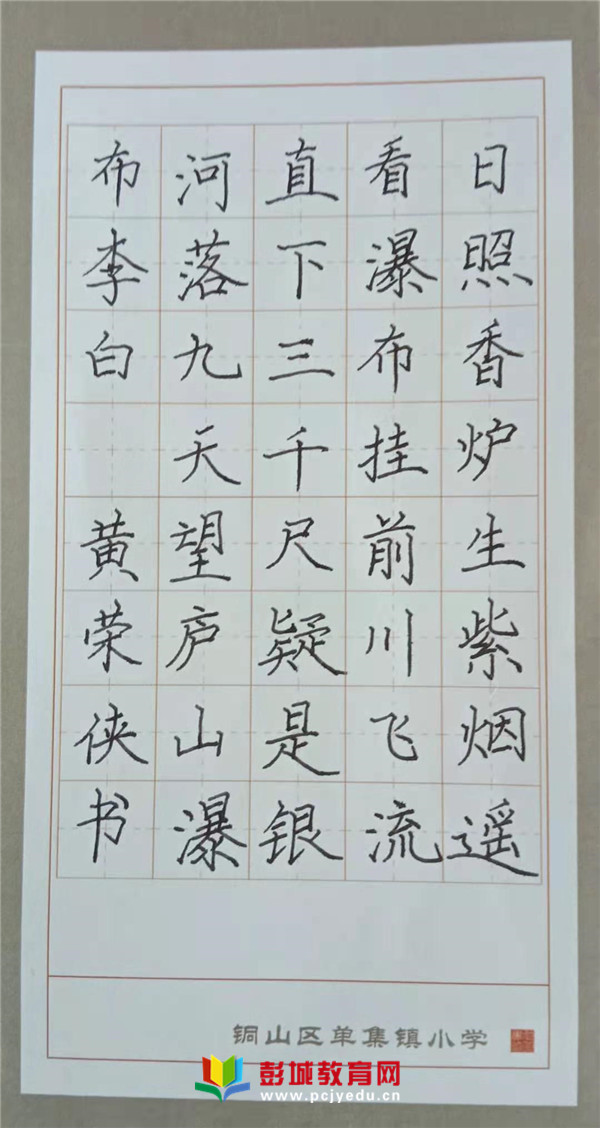 日照香炉生紫烟遥
看瀑布挂前川飞流
直下三千尺疑是银
河落九天望庐山瀑
布李白 黄荣侠书
铜山区单集镇小学
彭城教育网
www.pcjyedu.cn